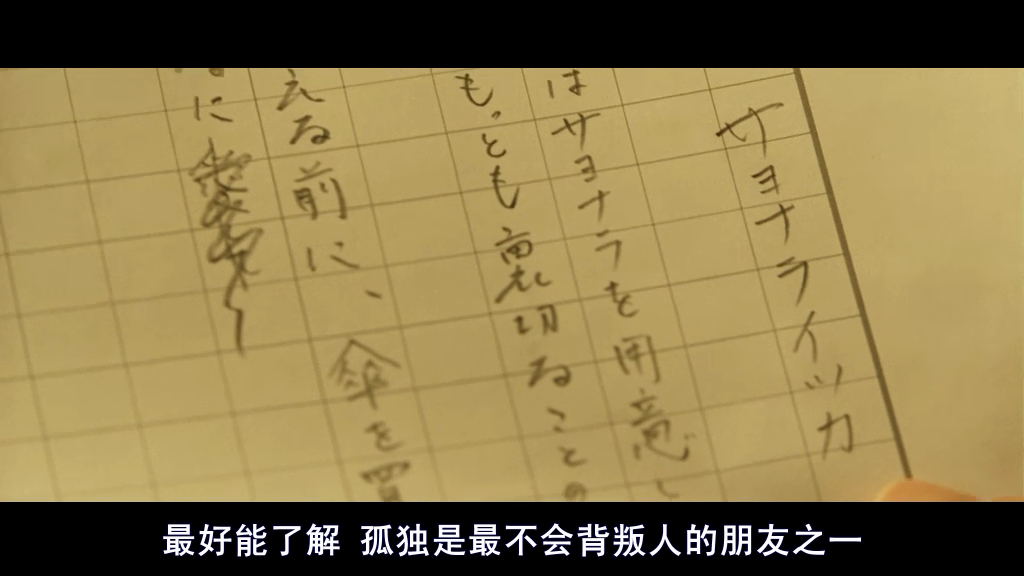 サヨナライツカ
はサヨナラを用意し
もっとも裏切ることの
える前に、傘を買
に
最好能了解 孤独是最不会背叛人的朋友之一